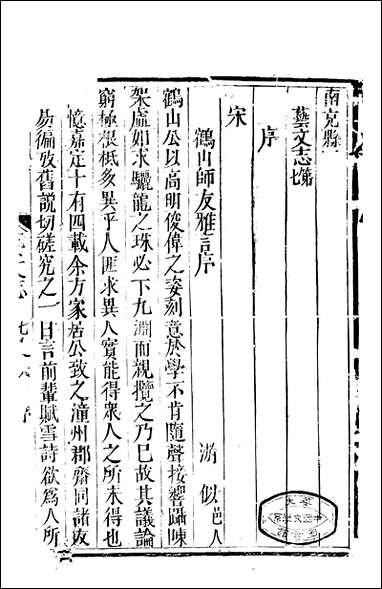 南充縣
藝文志七第
序
宋
鶴山師友雅言序
游似邑人
鶴山公以高明俊偉之姿刻意於學不肯隨聲接響躡陳
架虛如求驪龍之珠必下九淵而親攬之乃已故其議論
窮極根柢多異乎人匪求異人實能得衆人之所未得也
憶嘉定十有四載余方家居公致之潼州郡齋同諸友
易偏攷舊說切磋究之一日言前輩賦雪詩欲爲人所